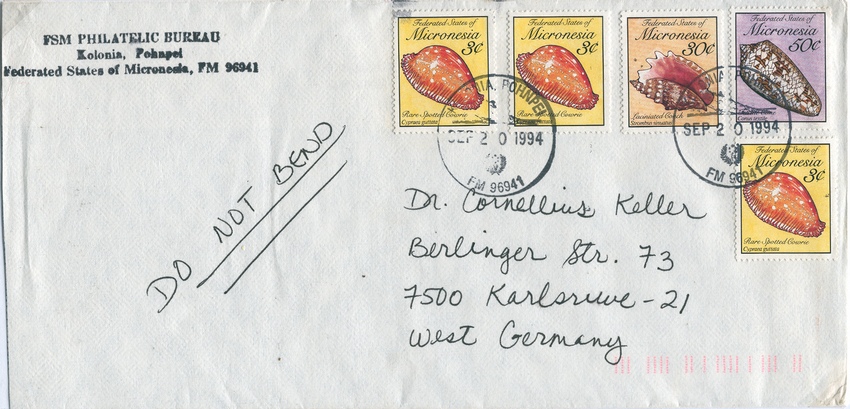 FSM PHILATELIC BUREAU
Kolonia, Pohnpei
Federated States of Micronesia, FM 96941
Federated States of
Micronesia
3¢
Rare Spotted Cowrie
Cypraea guttata
Federated States of
Micronesia
3¢
Rare Spotted Cowrie
Federated States of
Micronesia
30¢
Laciniated Conch
Strombus sinuatus
Federated States of
Micronesia
50¢
Conus textile
NIA, POHNPEI
SEP 20 1994
FM 96941
NIA, POHNPEI
SEP 20 1994
FM 96941
Federated States of
Micronesia
3¢
Rare Spotted Cowrie
Cypraea guttata
DO NOT BEND
Dr. Cornellius Keller
Berlinger Str. 73
7500 Karlsruwe-21
West Germany